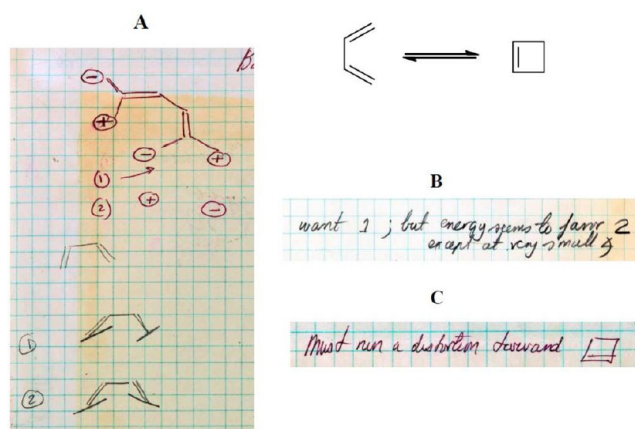 A
−
+
− +
①
② + −
①
②
B
want 1 ; but energy seems to favor 2
except at very small ∡
C
Must run a distortion toward